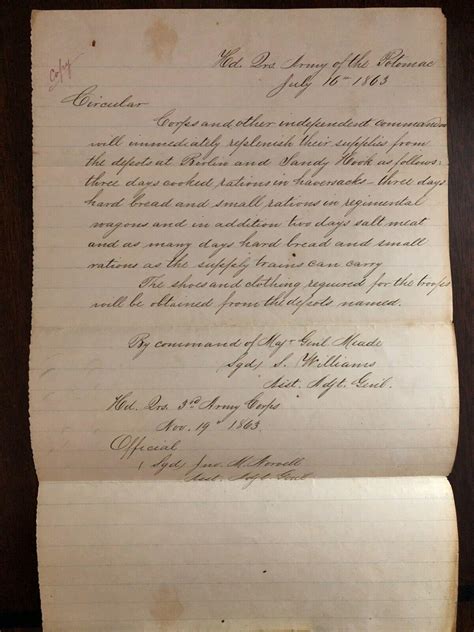 Copy
Hd. Qrs. Army of the Potomac
July 16th 1863
Circular
Corps and other independent commanders
will immediately replenish their supplies from
the depots at Berlin and Sandy Hook as follows:
three days cooked rations in haversacks – three days
hard bread and small rations in regimental
wagons and in addition two days salt meat
and as many days hard bread and small
rations as the supply trains can carry
The shoes and clothing required for the troops
will be obtained from the depots named.
By command of Maj Genl Meade
Sgd S. Williams
Asst. Adjt. Genl.
Hd. Qrs. 3rd Army Corps
Nov. 19th 1863
Official
(Sgd) Jno. M. Norvell
Asst. Adjt Genl